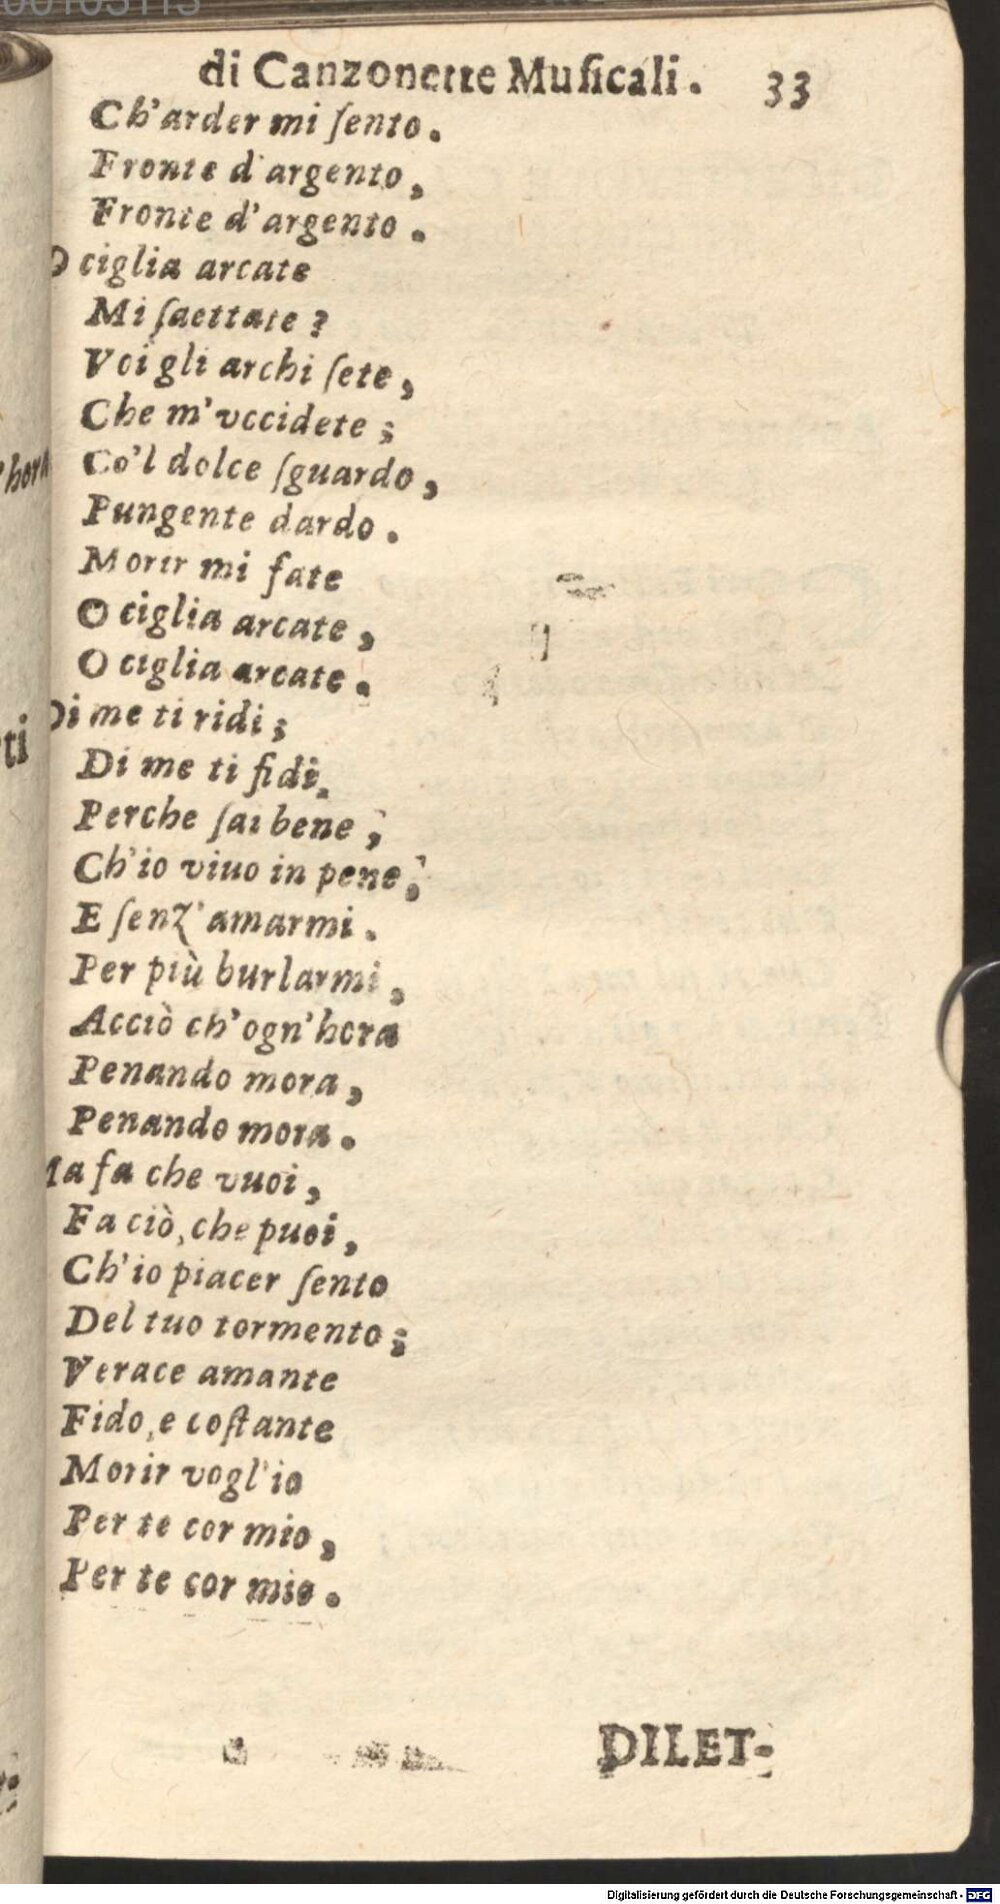 di Canzonette Muſicali. 33
Ch'arder mi ſento.
Fronte d'argento,
Fronte d'argento.
O ciglia arcate
Mi ſaettate?
Voi gli archi ſete,
Che m'vccidete;
Co'l dolce ſguardo,
Pungente dardo.
Morir mi fate
O ciglia arcate,
O ciglia arcate.
Di me ti ridi;
Di me ti fidi,
Perche ſai bene;
Ch'io viuo in pene;
E ſenz'amarmi.
Per più burlarmi,
Acciò ch'ogn'hora
Penando mora,
Penando mora.
Ma fa che vuoi,
Fa ciò, che puoi,
Ch'io piacer ſento
Del tuo tormento;
Verace amante
Fido, e coſtante
Morir vogl'io
Per te cor mio,
Per te cor mio.
DILET-
Digitalisierung gefördert durch die Deutsche Forschungsgemeinschaft - DFG